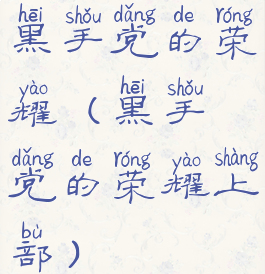 hēi shǒu dǎng de róng
黑手党的荣
yào hēi shǒu
耀(黑手
dǎng de róng yào shàng
党的荣耀上
bù
部)